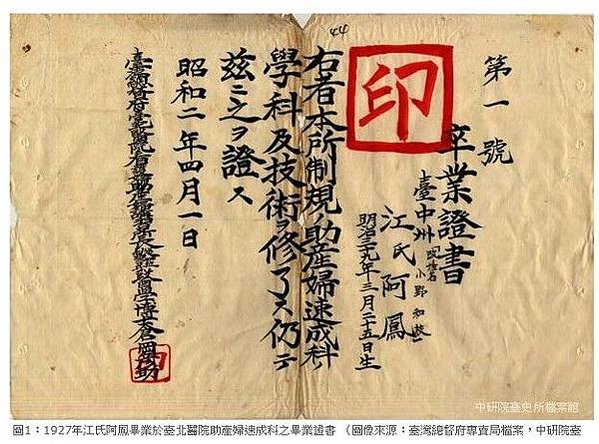 44
第一號
印
卒業證書
臺中州
改姓名 小野和
江氏阿鳳
明治三九年三月二十五日生
右者本所制規ノ助産婦速成科ノ
學科及技術ヲ修了ス仍テ
茲ニ之ヲ證ス
昭和二年四月一日
臺灣總督府臺北醫院 醫學博士倉岡彦助
印
中研院臺史所檔案館
圖1：1927年江氏阿鳳畢業於臺北醫院助產婦速成科之畢業證書 （圖像來源：臺灣總督府專賣局檔案，中研院臺